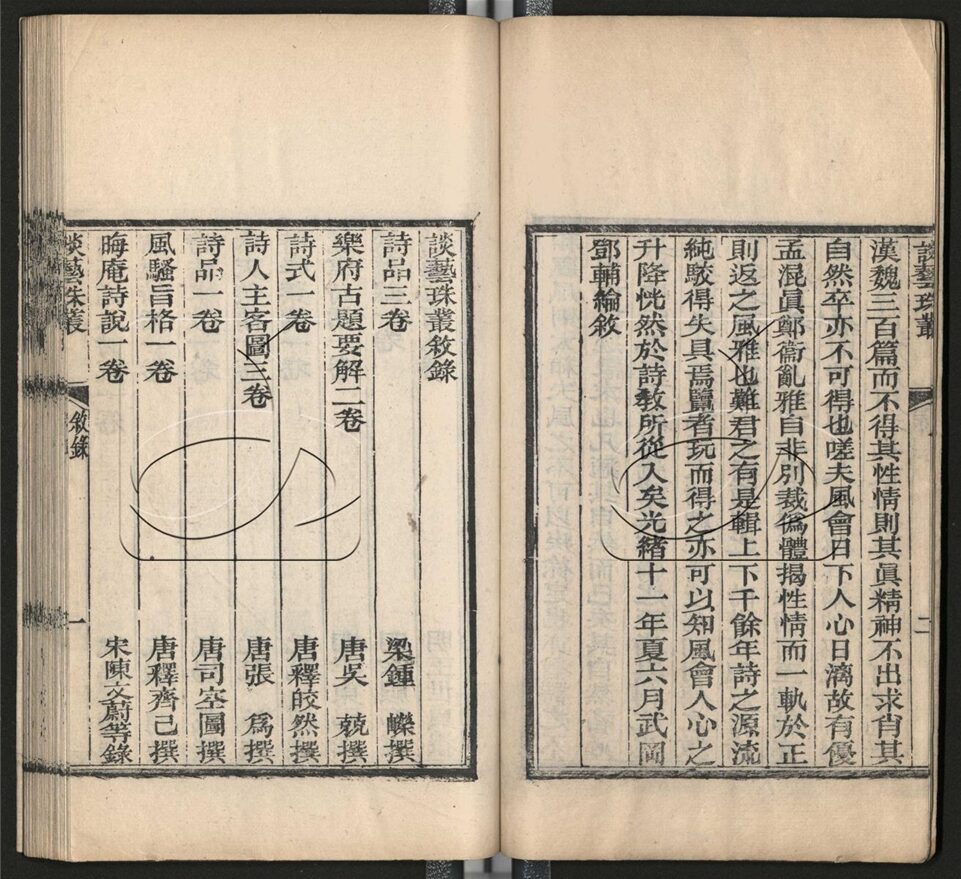 談藝珠叢
二
漢魏三百篇而不得其性情則其眞精神不出求肖其
自然卒亦不可得也嗟夫風會日下人心日漓故有優
孟混眞鄭衞亂雅自非別裁僞體揭性情而一軌於正
則返之風雅也難君之有是輯上下千餘年詩之源流
純駁得失具焉覽者玩而得之亦可以知風會人心之
升降恍然於詩敎所從入矣光緒十一年夏六月武岡
鄧輔綸敘
談藝珠叢敘錄
詩品三卷 梁鍾嶸撰
樂府古題要解二卷 唐吳兢撰
詩式一卷 唐釋皎然撰
詩人主客圖三卷 唐張爲撰
詩品一卷 唐司空圖撰
風騷旨格一卷 唐釋齊己撰
晦庵詩說一卷 宋陳文蔚等錄
談藝珠叢 敘錄 一